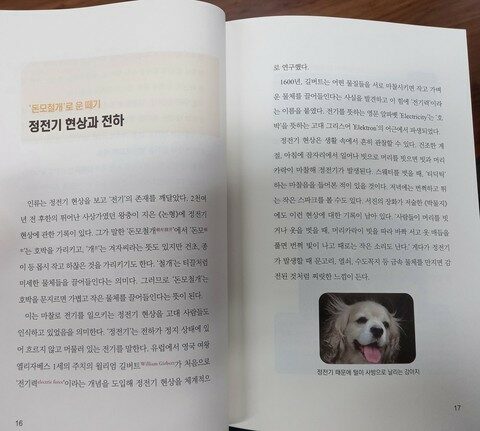 '돈모철개'로 운 떼기
정전기 현상과 전하
인류는 정전기 현상을 보고 '전기'의 존재를 깨달았다. 2천여
년 전 후한의 뛰어난 사상가였던 왕충이 지은 《논형》에 정전기
현상에 관한 기록이 있다. 그가 말한 '돈모철개'에서 '돈모
'는 호박을 가리키고, '개'는 겨자씨라는 뜻도 있지만 건초, 종
이 등 몹시 작고 하찮은 것을 가리키기도 한다. '철개'는 티끌처럼
미세한 물체들을 끌어들인다는 의미다. 그러므로 '돈모철개'는
호박을 문지르면 가볍고 작은 물체를 끌어들인다는 뜻이 된다.
이는 마찰로 전기를 일으키는 정전기 현상을 고대 사람들도
인식하고 있었음을 의미한다. '정전기'는 전하가 정지 상태에 있
어 흐르지 않고 머물러 있는 전기를 말한다. 유럽에서 영국 여왕
엘리자베스 1세의 주치의 윌리엄 길버트William Gilbert가 처음으로
'전기력electric force'이라는 개념을 도입해 정전기 현상을 체계적으
16
로 연구했다.
1600년, 길버트는 어떤 물질들을 서로 마찰시키면 작고 가벼
운 물체를 끌어들인다는 사실을 발견하고 이 힘에 '전기력'이라
는 이름을 붙였다. 전기를 뜻하는 영문 알파벳 'Electricity'는 '호
박'을 뜻하는 고대 그리스어 'Elektron'의 어근에서 파생되었다.
정전기 현상은 생활 속에서 흔히 관찰할 수 있다. 건조한 계
절, 아침에 잠자리에서 일어나 빗으로 머리를 빗으면 빗과 머리
카락이 마찰해 정전기가 발생된다. 스웨터를 벗을 때, '티디틱'
하는 마찰음을 들어본 적이 있을 것이다. 저녁에는 번쩍하고 튀
는 작은 스파크를 볼 수도 있다. 서진의 장화가 저술한 《박물지》
에도 이런 현상에 대한 기록이 남아 있다. '사람들이 머리를 빗
거나 옷을 벗을 때, 머리카락이 빗을 따라 바짝 서고 옷 매듭을
풀면 번쩍 빛이 나고 때로는 작은 소리도 난다.' 게다가 정전기
가 발생했을 때 문고리, 열쇠, 수도꼭지 등 금속 물체를 만지면
감전된 것처럼 찌릿한 느낌이 든다.
정전기 때문에 털이 사방으로 날리는 강아지.
17